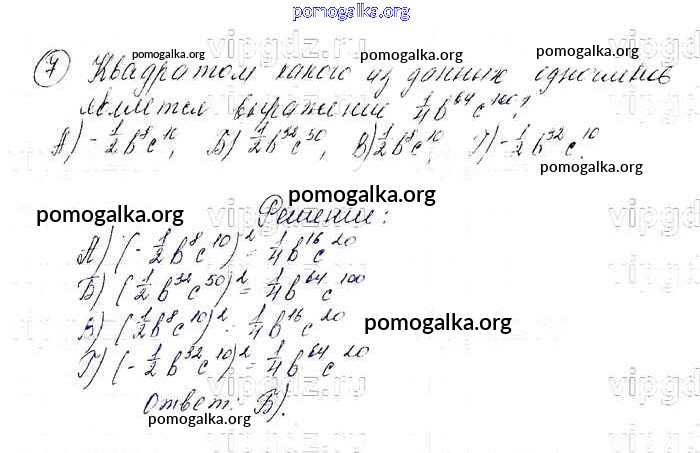 pomogalka.org
7 Квадратом какого из данных одночленов
pomogalka.org pomogalka.org pomogalka.org
является выражение 1/4 b^64 c^100?
А) -1/2 b^8 c^10, Б) 1/2 b^32 c^50, В) 1/2 b^8 c^10, Г) -1/2 b^32 c^10.
pomogalka.org
pomogalka.org
vipgdz.ru
pomogalka.org
Решение:
А) (-1/2 b^8 c^10)^2 = 1/4 b^16 c^20
Б) (1/2 b^32 c^50)^2 = 1/4 b^64 c^100
В) (1/2 b^8 c^10)^2 = 1/4 b^16 c^20
pomogalka.org
Г) (-1/2 b^32 c^10)^2 = 1/4 b^64 c^20
vipgdz.ru
Ответ: Б).
pomogalka.org